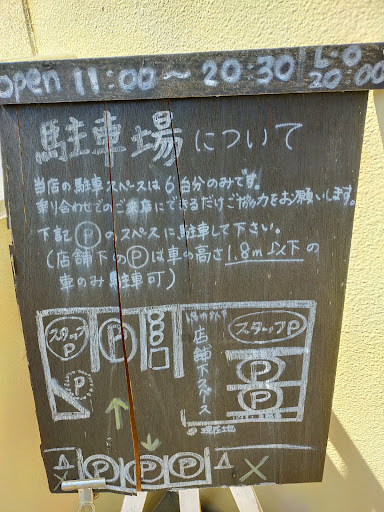 open 11:00〜20:30 L.O 20:00
駐車場について
当店の駐車スペースは6台分のみです。
乗り合わせでのご来店にできるだけご協力をお願いします。
下記Ⓟのスペースに駐車して下さい。
(店舗下のⓅは車の高さ1.8m以下の
車のみ駐車可)
スタッフP
P
P
店舗下スペース
スタッフP
P
P
現在地
P P P